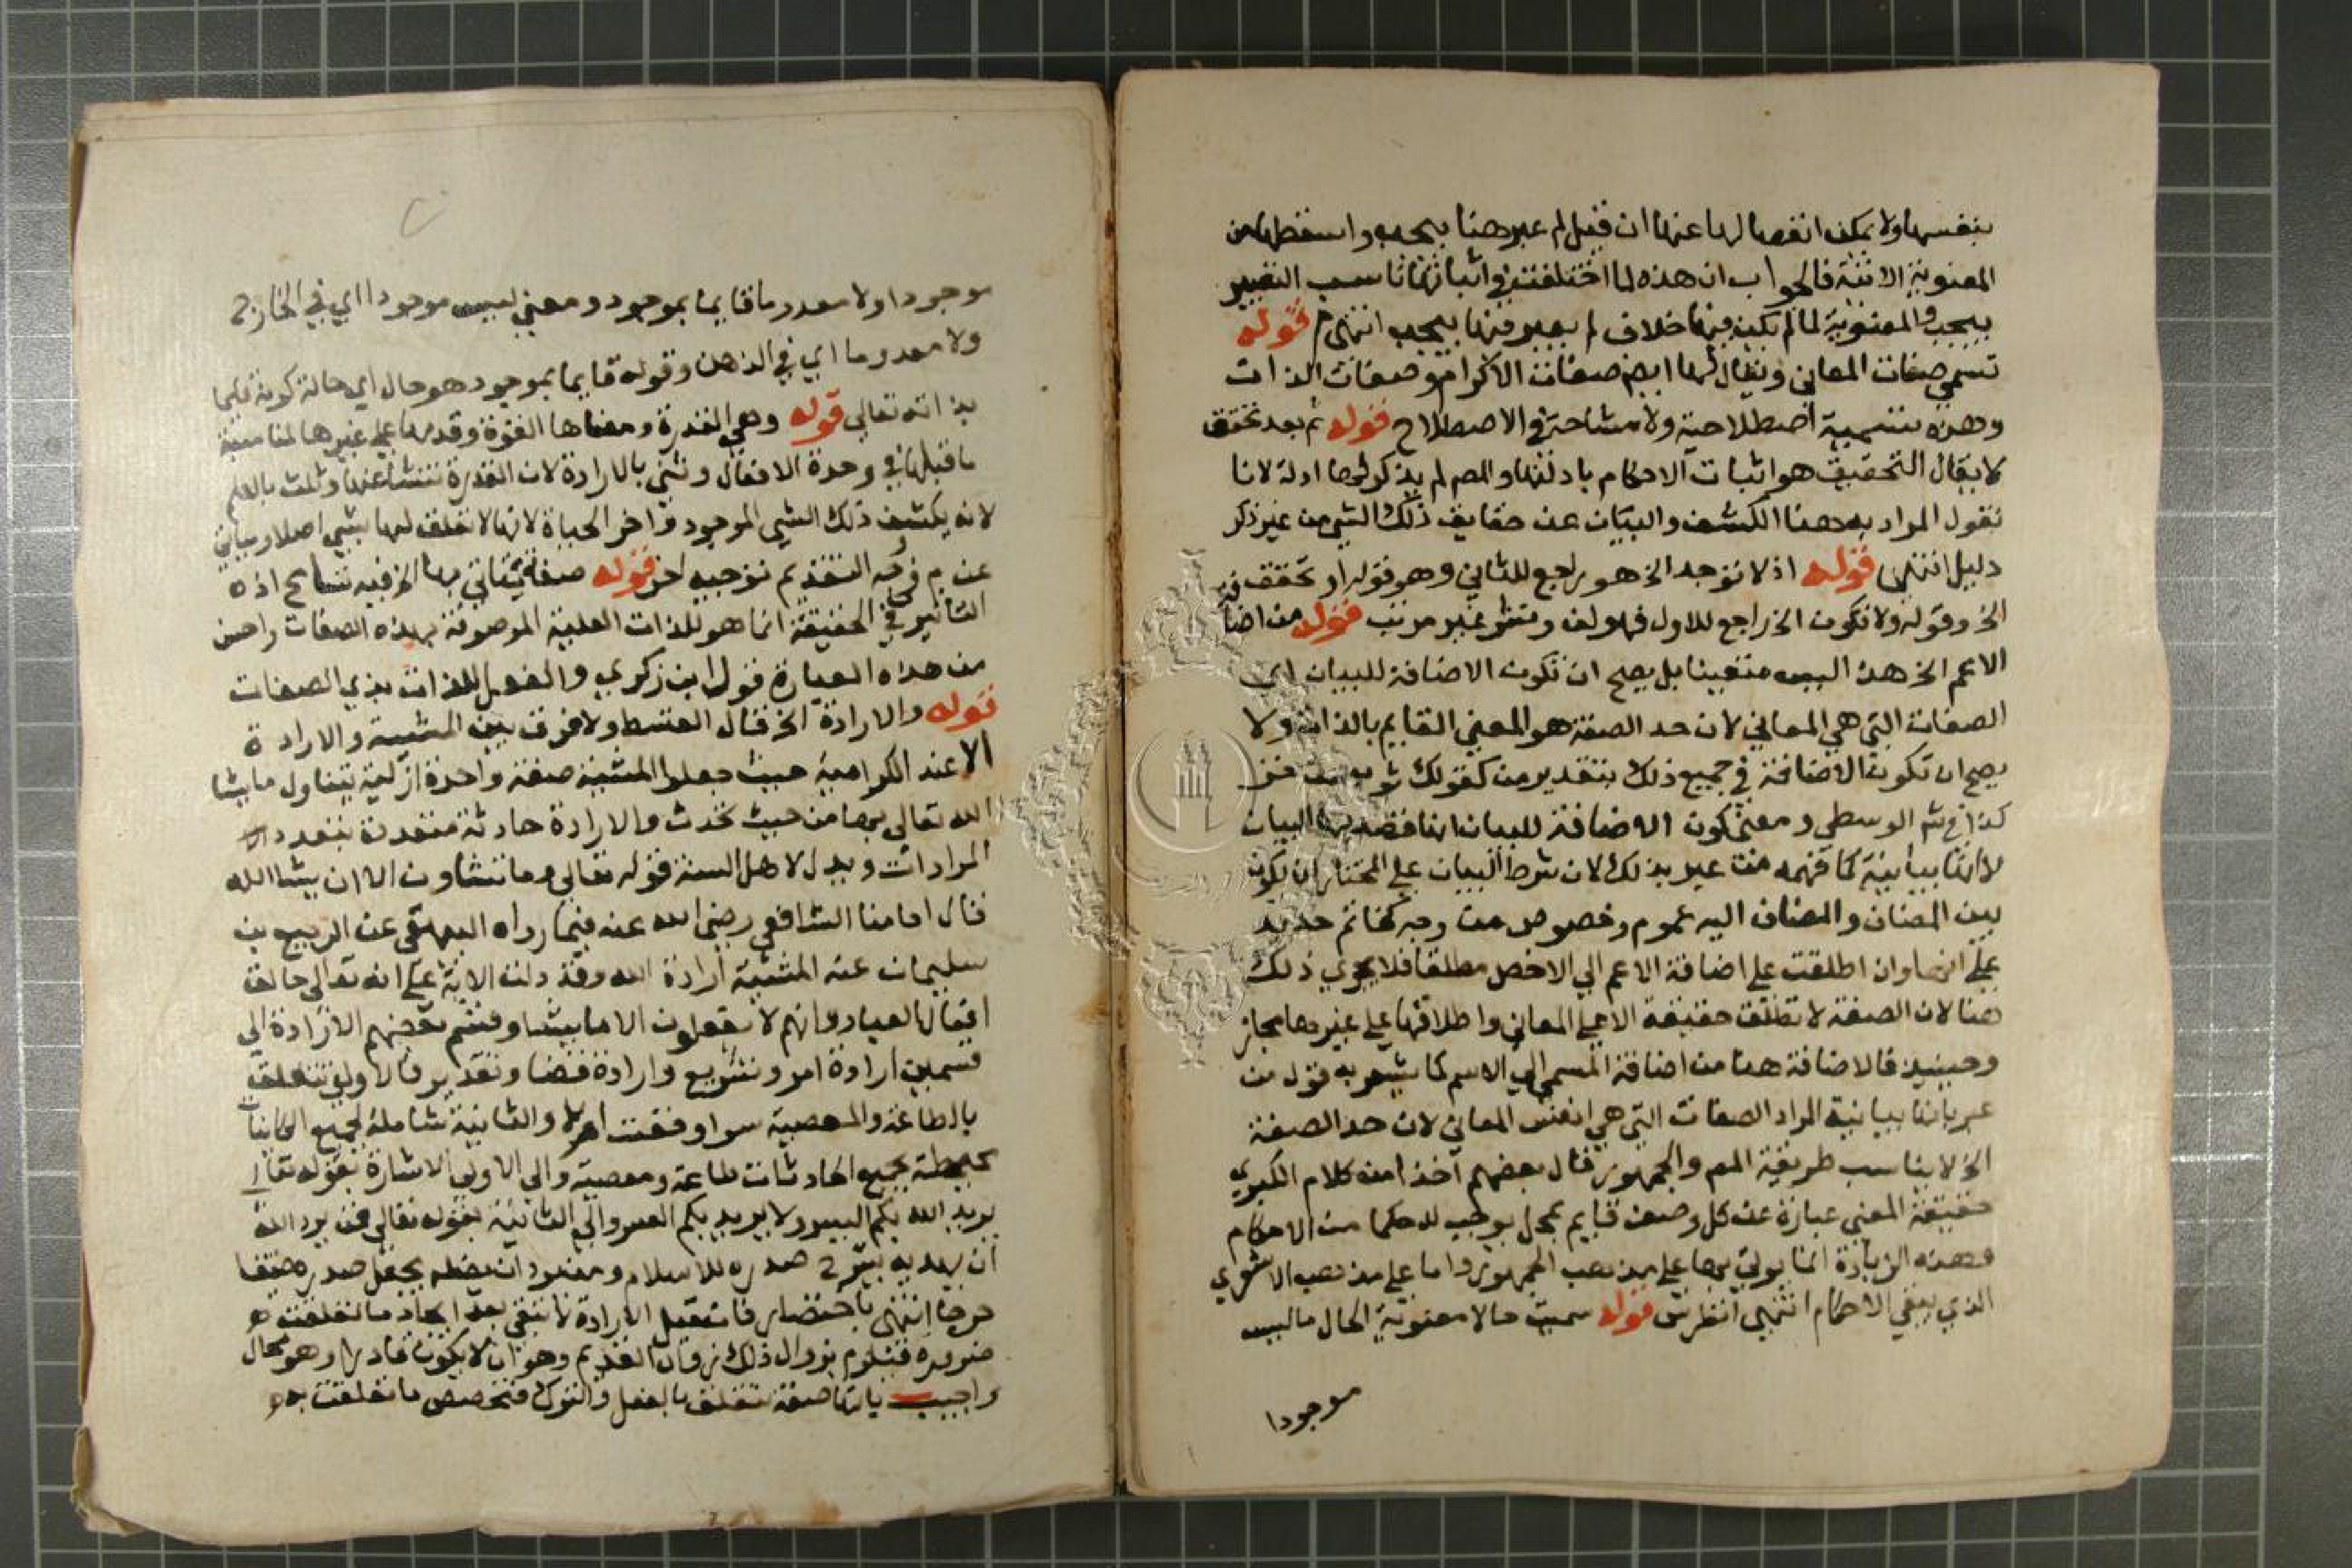 بنفسها ولا يمكن انفصالها عنها ان قيل لم عبر هنا بيجب واسقطها من
المعنوية الاتية فالجواب ان هذه لما اختلفت في اثباتها ناسب التعبير
بيجب والمعنوية لما لم تكن فيها خلاف لم يعبر فيها بيجب انتهى م قوله
تسمى صفات المعاني ويقال لها ايضم صفات الاكرام وصفات الذات
وهذه تسمية اصطلاحية ولا مشاحة في الاصطلاح قوله ثم بعد تحقق
لا يقال التحقيق هو اثبات الاحكام بادلتها والمص لم يذكر لها ادلة لانا
نقول المراد به هنا الكشف والبيان عن حقايق ذلك الشي من غير ذكر
دليل انتهى قوله اذ لا توجد الخ هو راجع للثاني وهو قوله او تحقق
الخ وقوله ولا تكون الخ راجع للاول فهو لف ونشر غير مرتب قوله من اضا
الاعم الخ هذا ليس متعينا بل يصح ان تكون الاضافة للبيان اي
الصفات التي هي المعاني لان حد الصفة هو المعنى القايم بالذات ولا
يصح ان تكون الاضافة في جميع ذلك بتقدير من كقولك ثوب من خز
كذا في شم الوسطى ومعنى كون الاضافة للبيان انها قصد بها البيان
لا انها بيانية كما فهمه من عبر بذلك لان شرط البيان على المختار ان يكون
بين المضاف والمضاف اليه عموم وخصوص من وجه كخاتم حديد
على انها وان اطلقت على اضافة الاعم الي الاخص مطلقا فلا يجري ذلك
هنا لان الصفة لا تطلق حقيقة الا على المعاني واطلاقها على غيرها مجاز
وحينيذ فالاضافة هنا من اضافة المسمى الي الاسم كما يشعر به قول من
عبر بانها بيانية المراد الصفات التي هي انفس المعاني لان حد الصفة
الخ لا يناسب طريقة المص والجمهور قال بعضهم اخذا من كلام الكبري
حقيقة المعنى عبارة عن كل وصف قايم بمحل يوجب له حكما من الاحكام
وهذه الزيادة انما يوتي بها على مذهب الجمهور واما على مذهب الاشعري
الذي ينفي الاحكام انتهى انظر س قوله سميت حالا معنوية الحال ما ليس
موجودا
موجودا ولا معدوما قايما بموجود ومعنى ليس موجودا اي في الخارج
ولا معدوما اي في الذهن وقوله قايما بموجود هو حال اي حالة كونه قايما
بذاته تعالى قوله وهي القدرة ومعناها القوة وقدمها على غيرها لمناسبة
ما قبلها في وحدة الافعال وثني بالارادة لان القدرة تنشا عنها وثلث بالعلم
لانه يكشف ذلك الشي الموجود واخر الحياة لانها لا تعلق لها بشي اصلا وسياتي
عن م في وجه التقديم توجيه اخر قوله صفة يتاتى بها الخ فيه تسامح اذ
التاثير في الحقيقة انما هو للذات العلية الموصوفة بهذه الصفات واحسن
من هذه العبارة قول ابن زكري والفعل للذات بذي الصفات
قوله والارادة الخ قال القسط ولا فرق بين المشية والارادة
الا عند الكرامية حيث جعلوا المشية صفة واحدة ازلية يتناول ما يشا
الله تعالى بها من حيث تحدث والارادة حادثة متعددة بتعدد
المرادات ويدل لاهل السنة قوله تعالى وما تشاون الا ان يشا الله
قال امامنا الشافعي رضي الله عنه فيما رواه البيهقي عن الربيع بن
سليمان عنه المشية ارادة الله وقد دلت الاية على انه تعالى خالق
افعال العباد وانهم لا يفعلون الا ما يشا وقسم بعضهم الارادة الي
قسمين ارادة امر وتشريع وارادة قضا وتقدير فالاولي تتعلق
بالطاعة والمعصية سوا وقعت ام لا والثانية شاملة لجميع الكاينات
محيطة بجميع الحادثات طاعة ومعصية والى الاولى الاشارة بقوله تعالى
يريد الله بكم اليسر ولا يريد بكم العسر والي الثانية بقوله تعالى فمن يرد الله
ان يهديه يشرح صدره للاسلام ومن يرد ان يضله يجعل صدره ضيقا
حرجا انتهى باختصار فان قيل الارادة لا تبقى بعد ايجاد ما تعلقت به
ضرورة فيلزم زوال ذلك زوال القديم وهو ان لا يكون قادرا وهو محال
واجيب بانها صفة تتعلق بالفعل والترك فتخصص ما تعلقت به